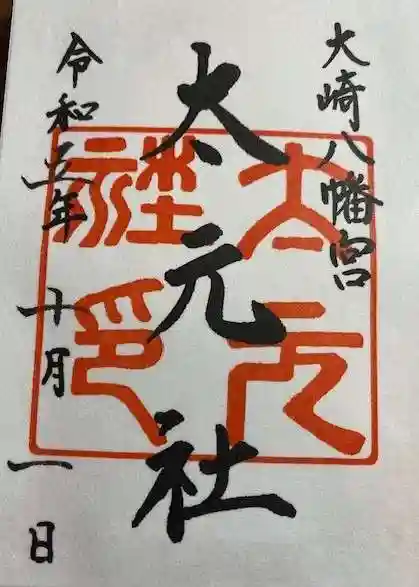 大崎八幡宮
太元社
令和五年 十月 一日
太元
社印